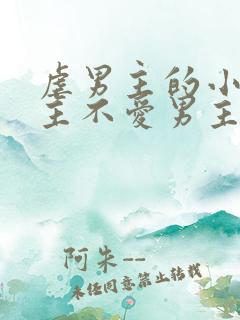 虐男主的小
主不爱男主
阿朱--
未经同意禁止转载